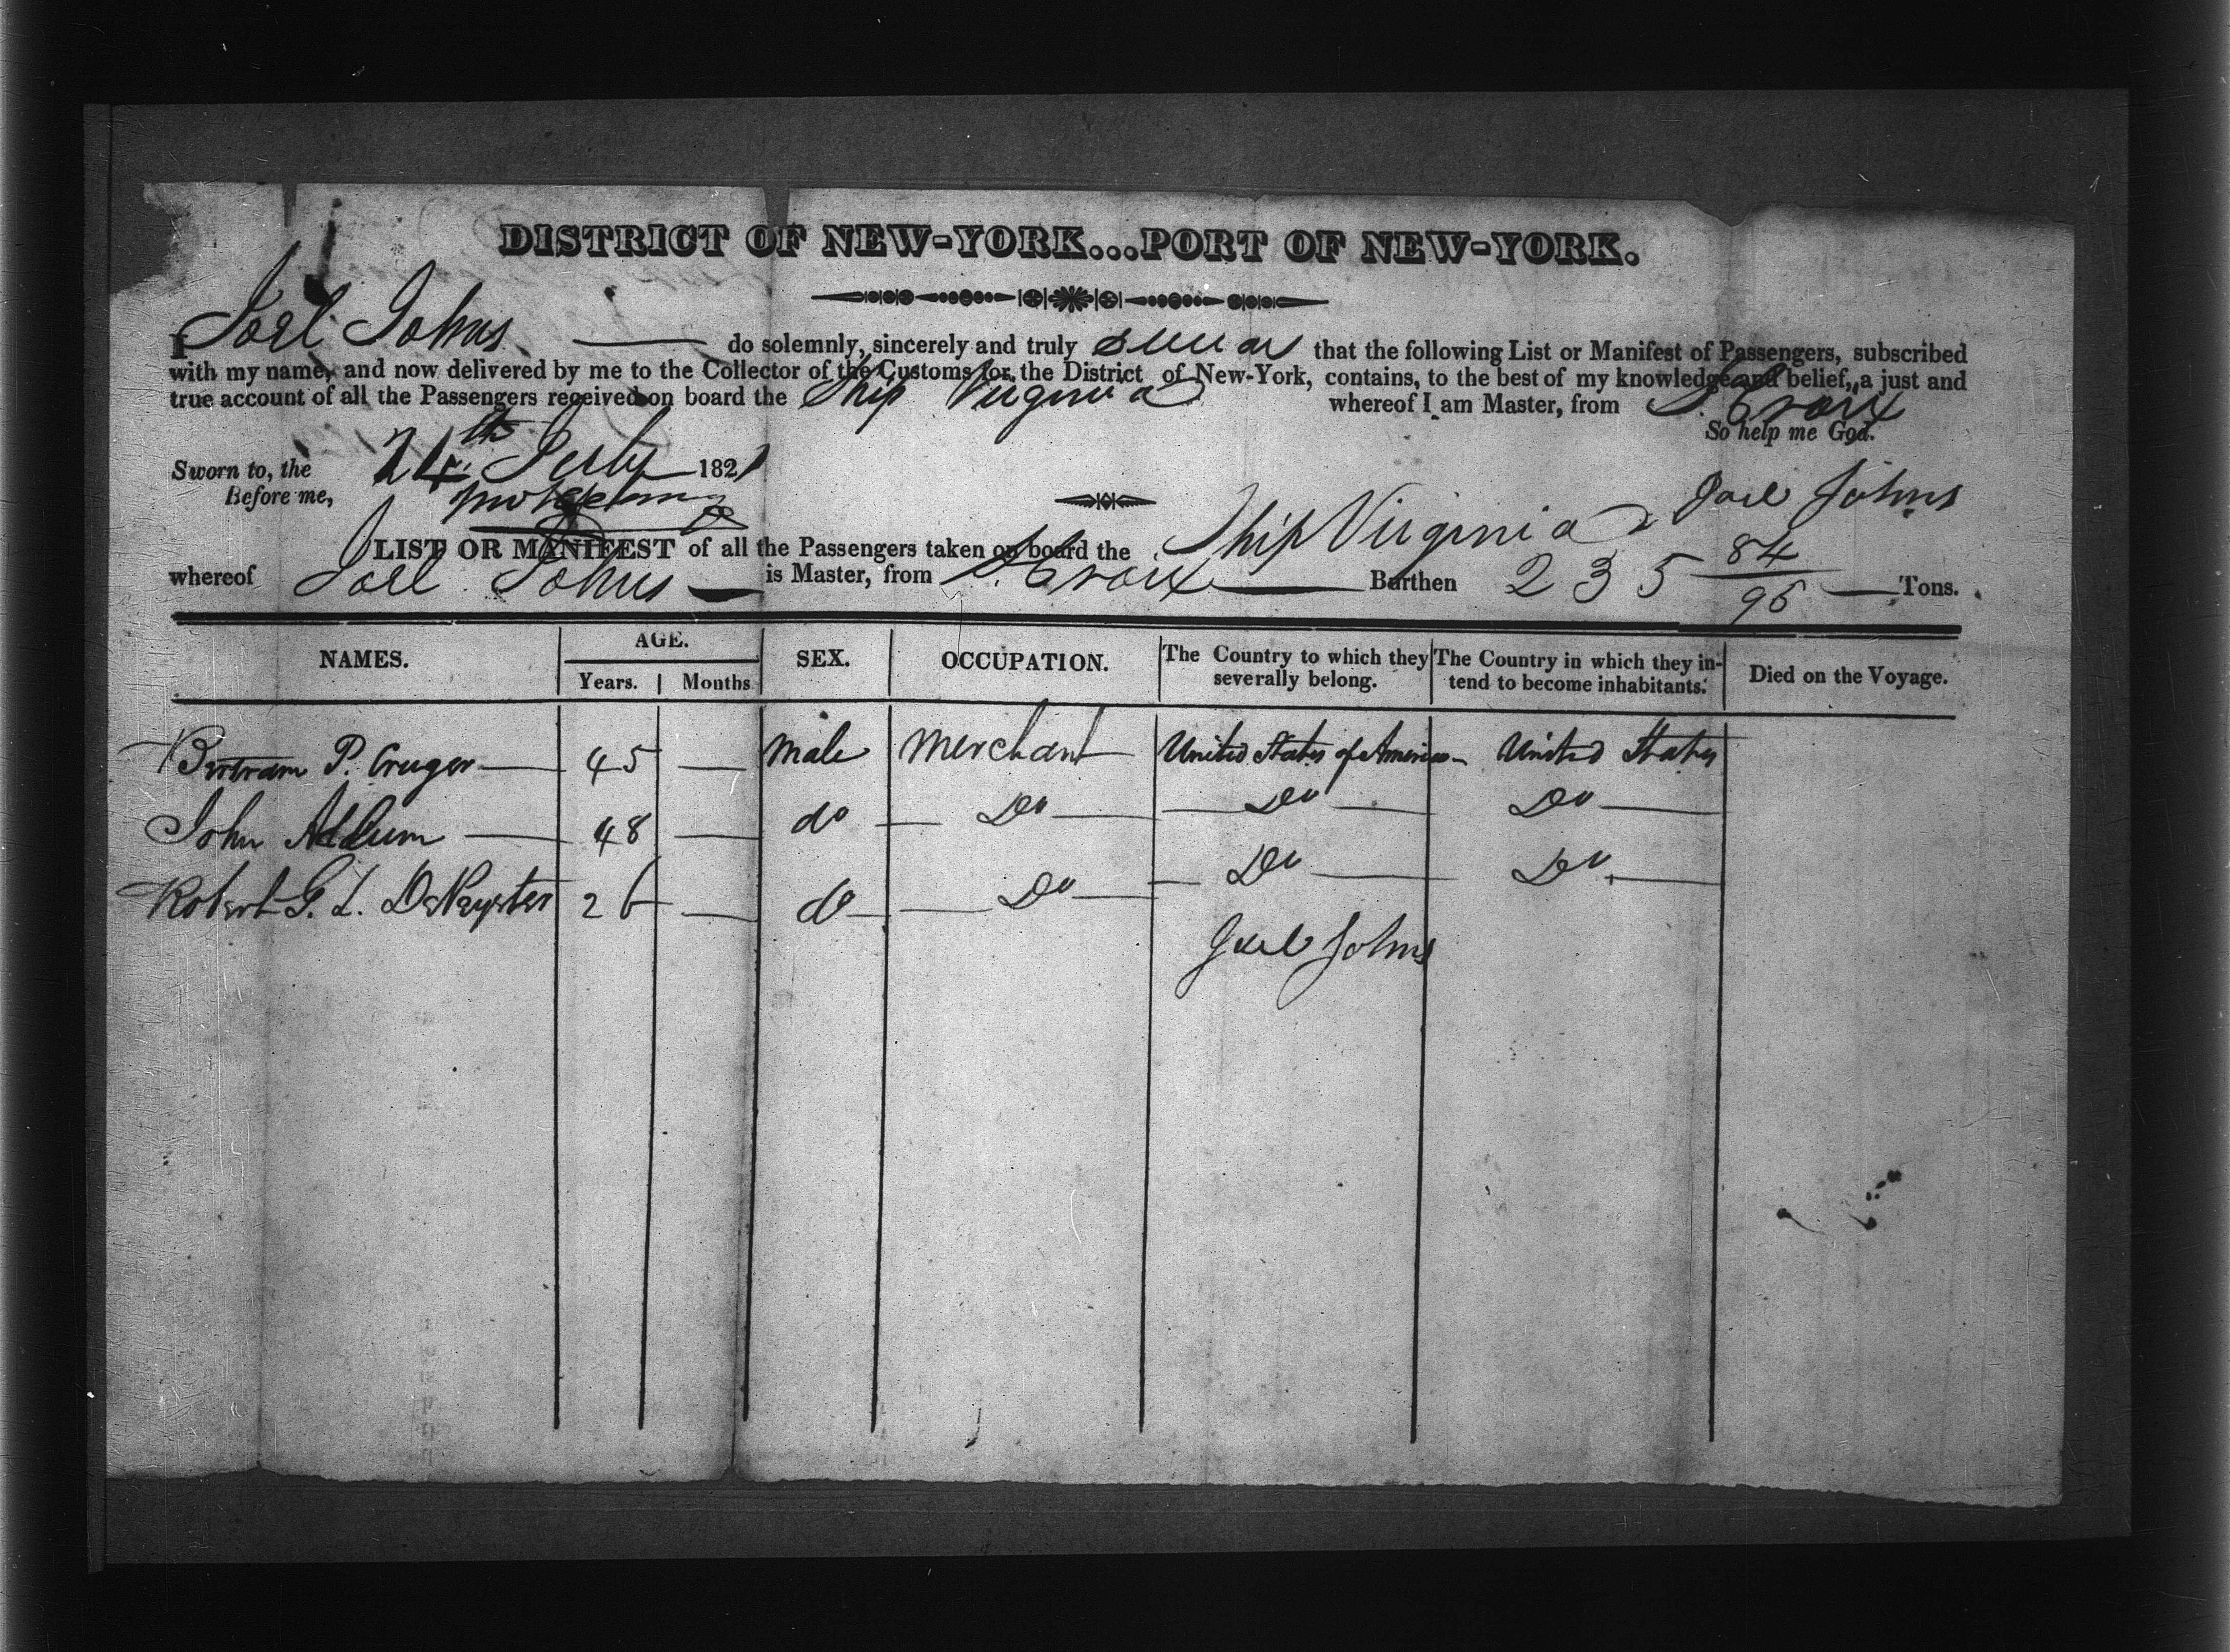 DISTRICT OF NEW-YORK...PORT OF NEW-YORK.
I Joel Johns do solemnly, sincerely and truly swear that the following List or Manifest of Passengers, subscribed
with my name, and now delivered by me to the Collector of the Customs for the District of New-York, contains, to the best of my knowledge and belief, a just and
true account of all the Passengers received on board the Ship Virginia whereof I am Master, from St. Croix
So help me God.
Sworn to, the 24th July 1821
Before me, Joel Johns
LIST OR MANIFEST of all the Passengers taken on board the Ship Virginia
whereof Joel Johns is Master, from St. Croix Burthen 235 84/95 Tons.
NAMES. AGE. SEX. OCCUPATION. The Country to which they severally belong. The Country in which they intend to become inhabitants. Died on the Voyage.
Years. Months
Bertram P. Cruger 45 Male Merchant United States of America United States
John Addum 48 do Do Do Do
Robert G. L. DePeyster 26 do Do Do Do
Joel Johns